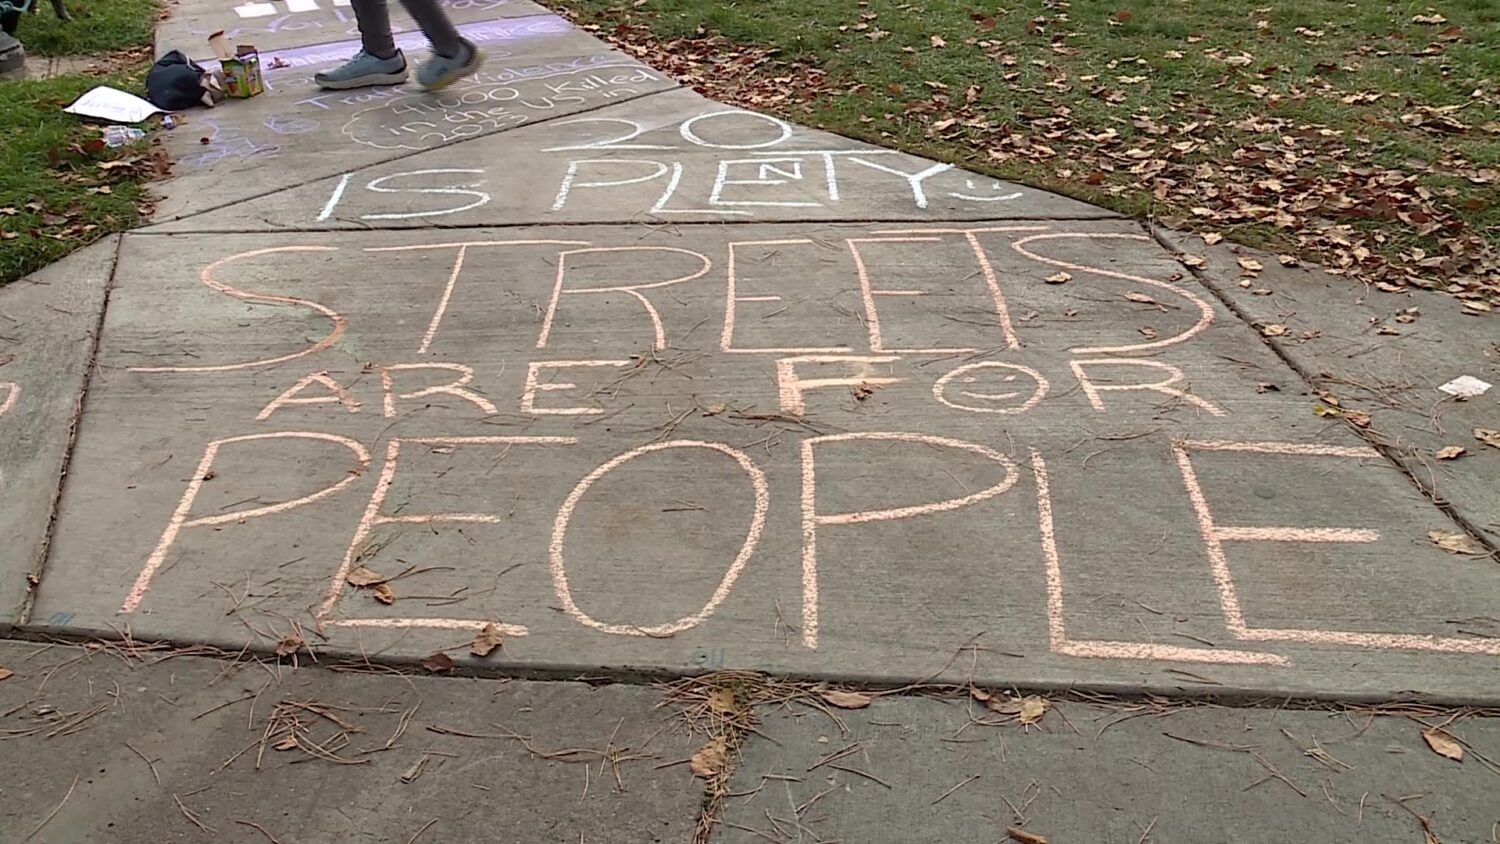 Traffic Violence
41,000 Killed
in the US in
2023
20
IS PLENTY
STREETS
ARE FOR
PEOPLE